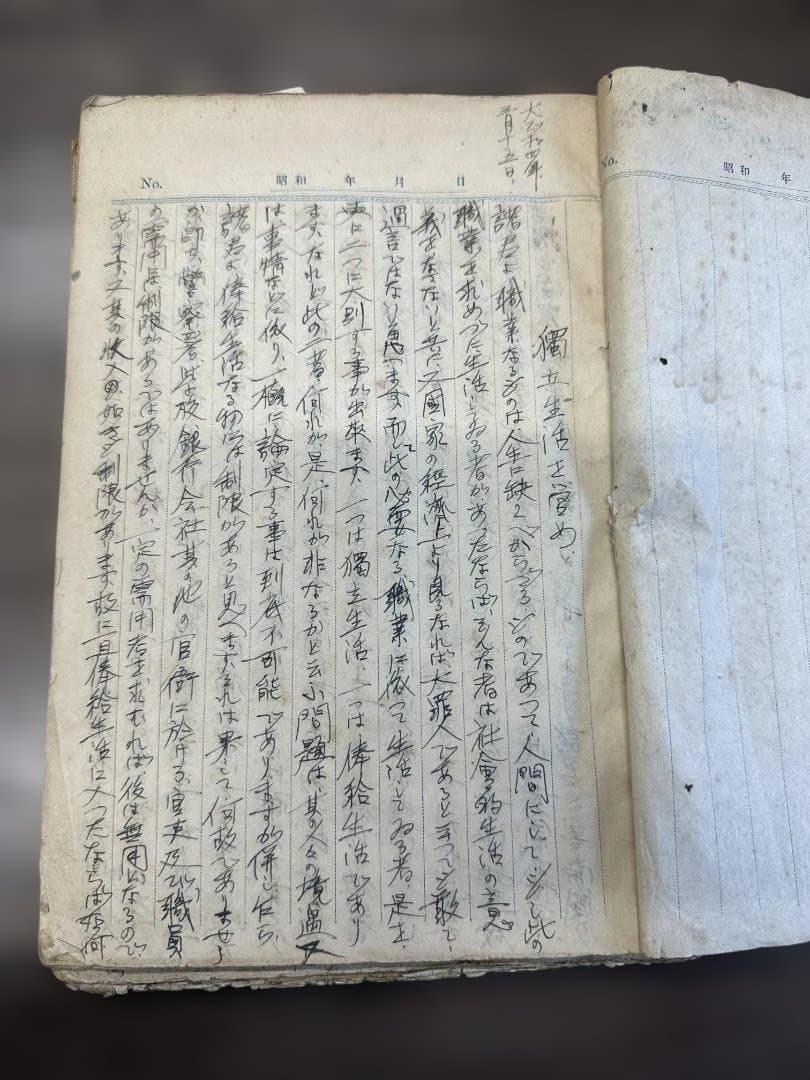 大正十四年
三月十五日、
No.　昭和　年　月　日
No.　昭和　年
獨立生活を営め、
諸君よ職業なるものは、人生に缺くべからざるものであつて、人間にして若し此の
職業を求めずに生活してゐる者があつたならば、そんな者は社會的生活の意
義をなさないと共に又國家の経済上より見るなれば大罪人であると言つても敢て
過言ではないと思います、而して此の必要なる職業に依つて生活してゐる者、是を
更に二つに大別する事が出来ます、一つは獨立生活、一つは俸給生活であり
ます、なれど此の二者、何れが是、何れが非なるかと云ふ問題は、其の人々の境遇又
は、事情などに依り、一概に論定する事は到底不可能でありますが併し乍ら、
諸君よ俸給生活なる物には制限があると思へますそれは果して何故でありませう
か、即ち警察署、学校、銀行会社其の他の官衙に於ける、官吏及び職員
の需用は制限があるではありませんか、一定の需用者を求むれば、後は無用となるので
あります、又其の収入の如きも制限があります故に一旦俸給生活に入つたならば如何